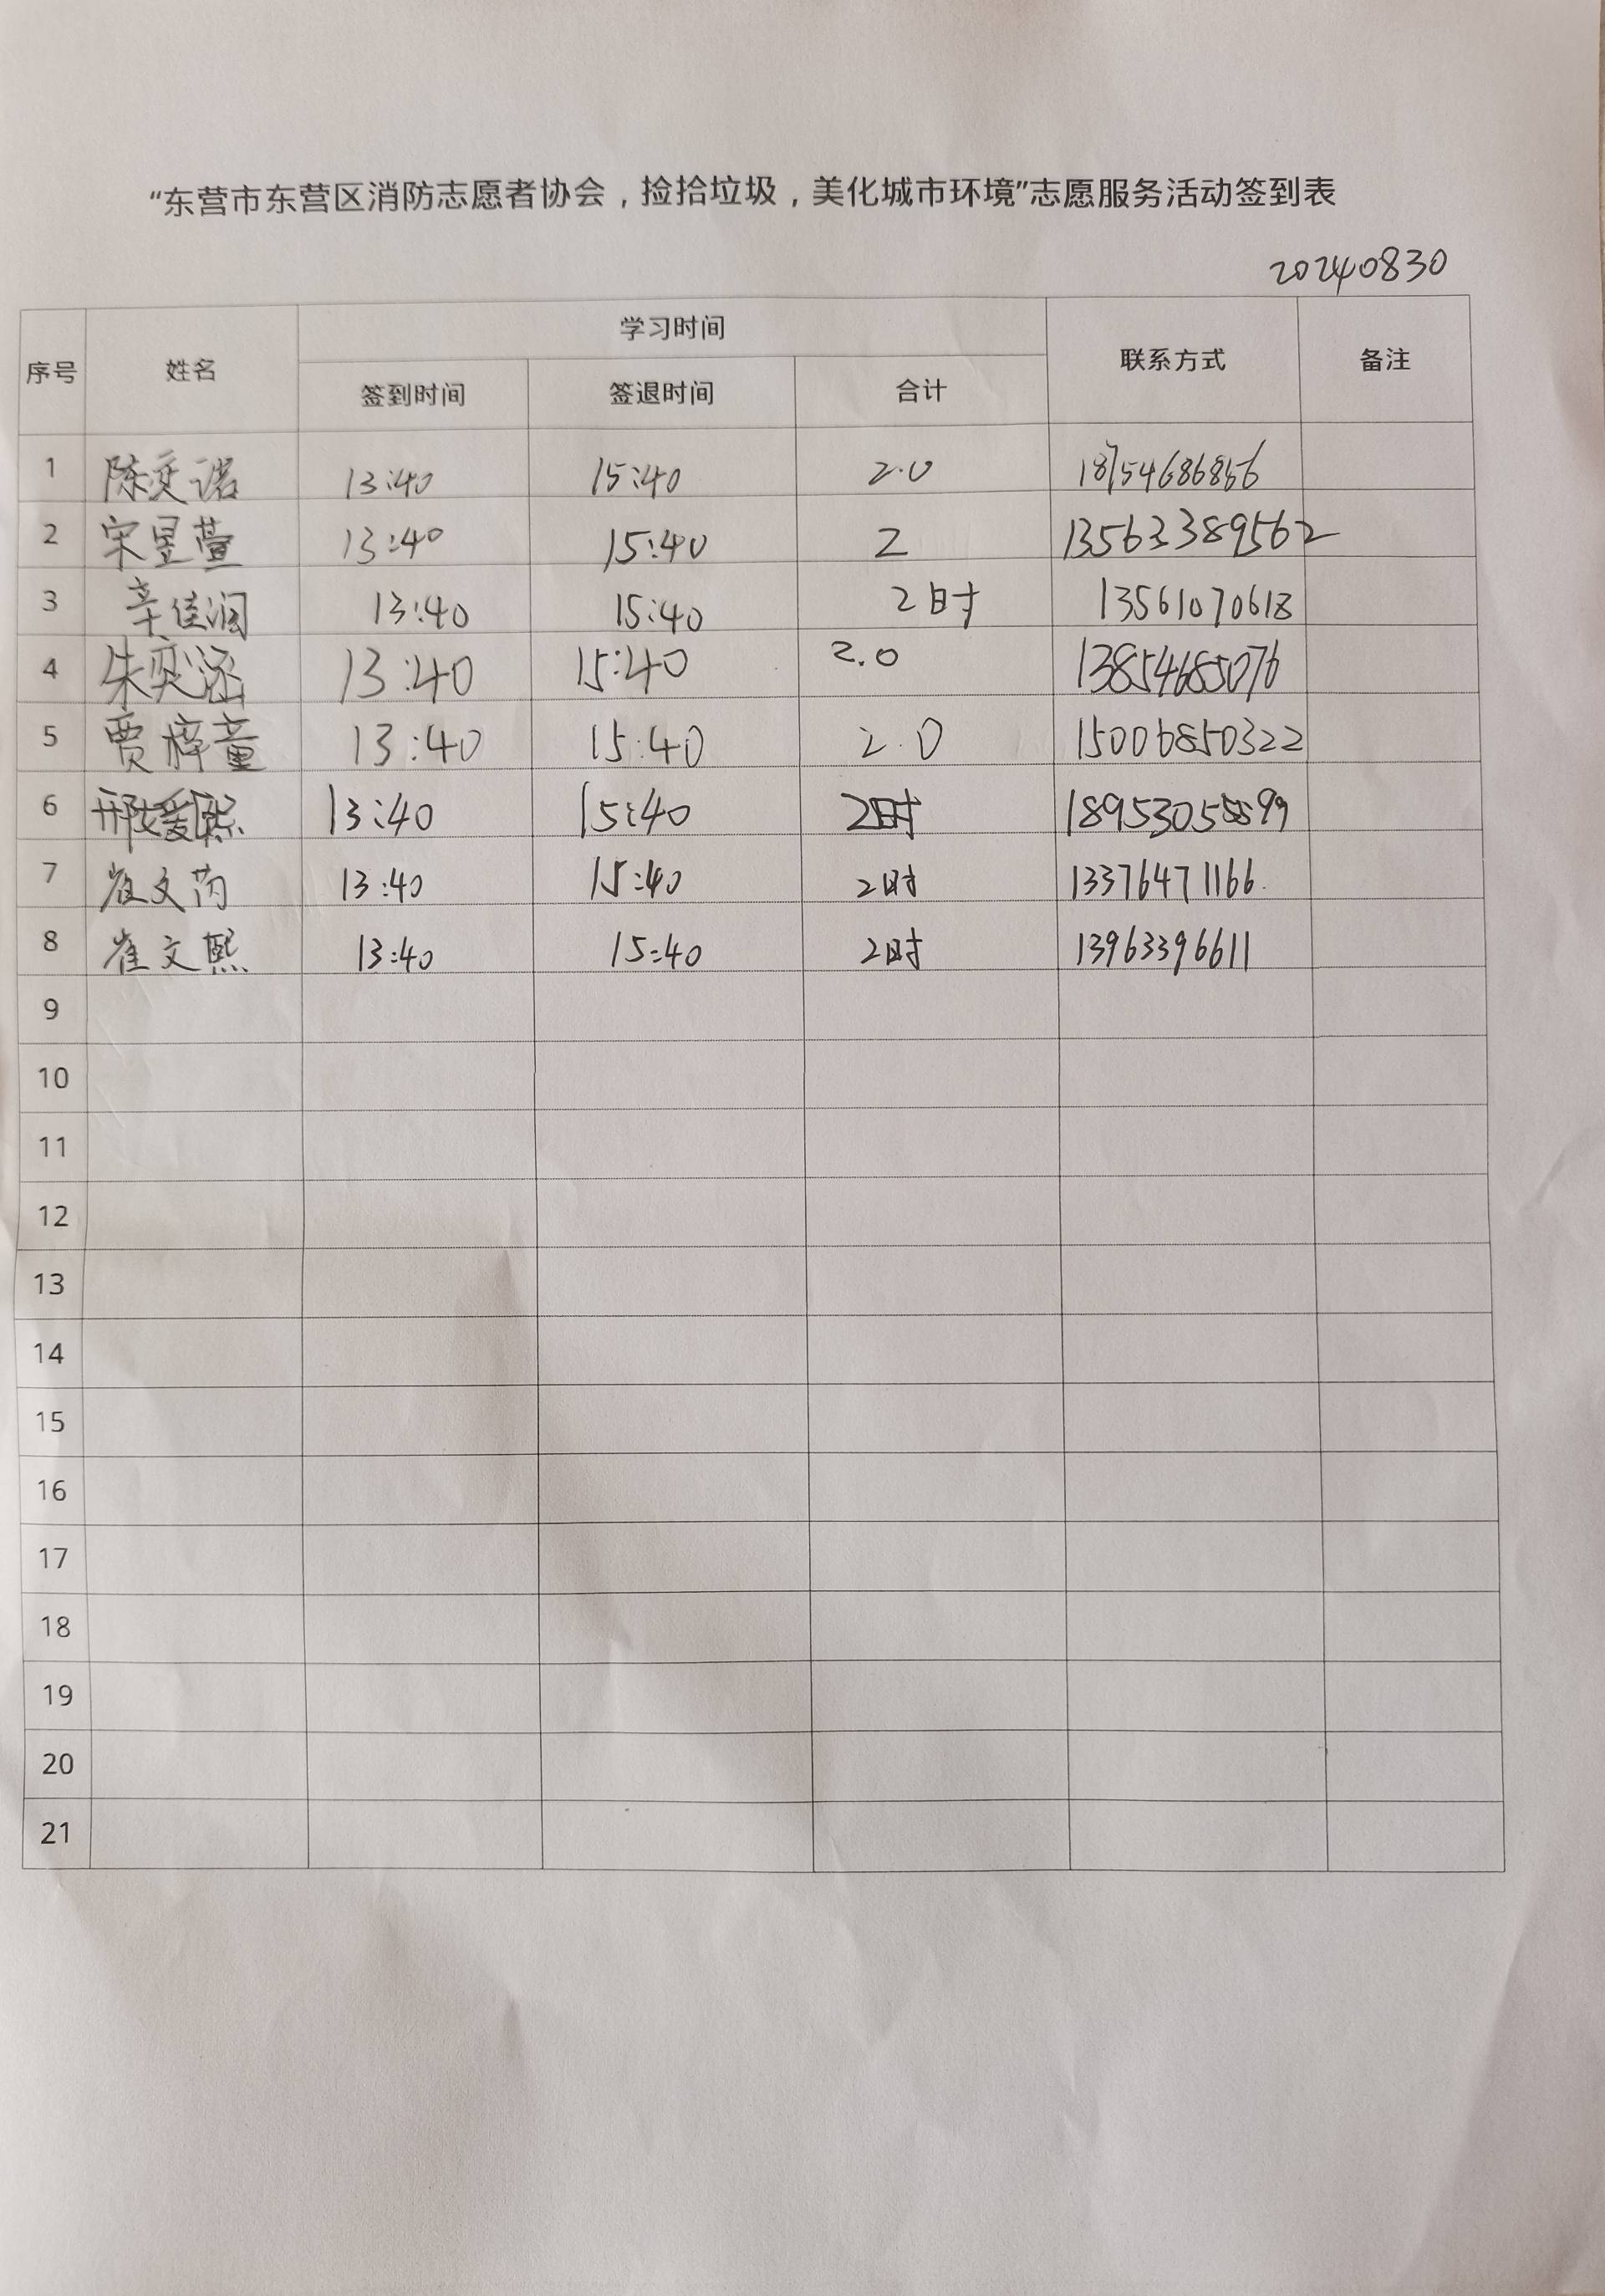 “东营市东营区消防志愿者协会，捡拾垃圾，美化城市环境”志愿服务活动签到表
20240830
序号 姓名 学习时间 联系方式 备注
签到时间 签退时间 合计
1 陈奕诺 13:40 15:40 2.0 18754686856
2 宋昱萱 13:40 15:40 2 13563389562
3 辛佳润 13:40 15:40 2时 13561070618
4 朱奕涵 13:40 15:40 2.0 13854685076
5 贾梓童 13:40 15:40 2.0 15006850322
6 邢媛熙 13:40 15:40 2时
7 崔文芮 13:40 15:40 2时 13376471166.
8 崔文熙 13:40 15:40 2时 13963396611
9
10
11
12
13
14
15
16
17
18
19
20
21